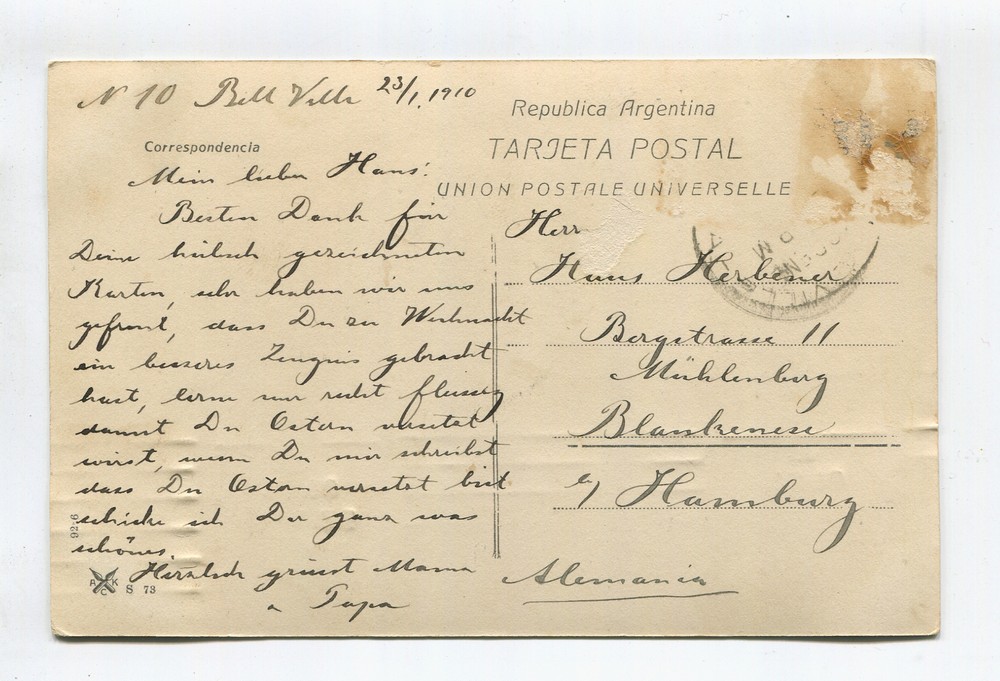 N 10 Bell Ville 23/1 1910
Republica Argentina
TARJETA POSTAL
UNION POSTALE UNIVERSELLE
Correspondencia
Mein lieber Hans!
Besten Dank für
Deine hübsch gezeichneten
Karten, sehr haben wir uns
gefreut, dass Du zu Weihnacht
ein besseres Zeugnis gebracht
hast, lerne nur recht fleissig
damit Du Ostern versetzt
wirst, wenn Du mir schreibst
dass Du Ostern versetzt bist
schicke ich Dir ganz was
schönes.
Herzlich grüsst Mama
u Papa
92-6
A K C S 73
Herr
Hans Herbener
Bergstrasse 11
Mühlenberg
Blankenese
Hamburg
Alemania